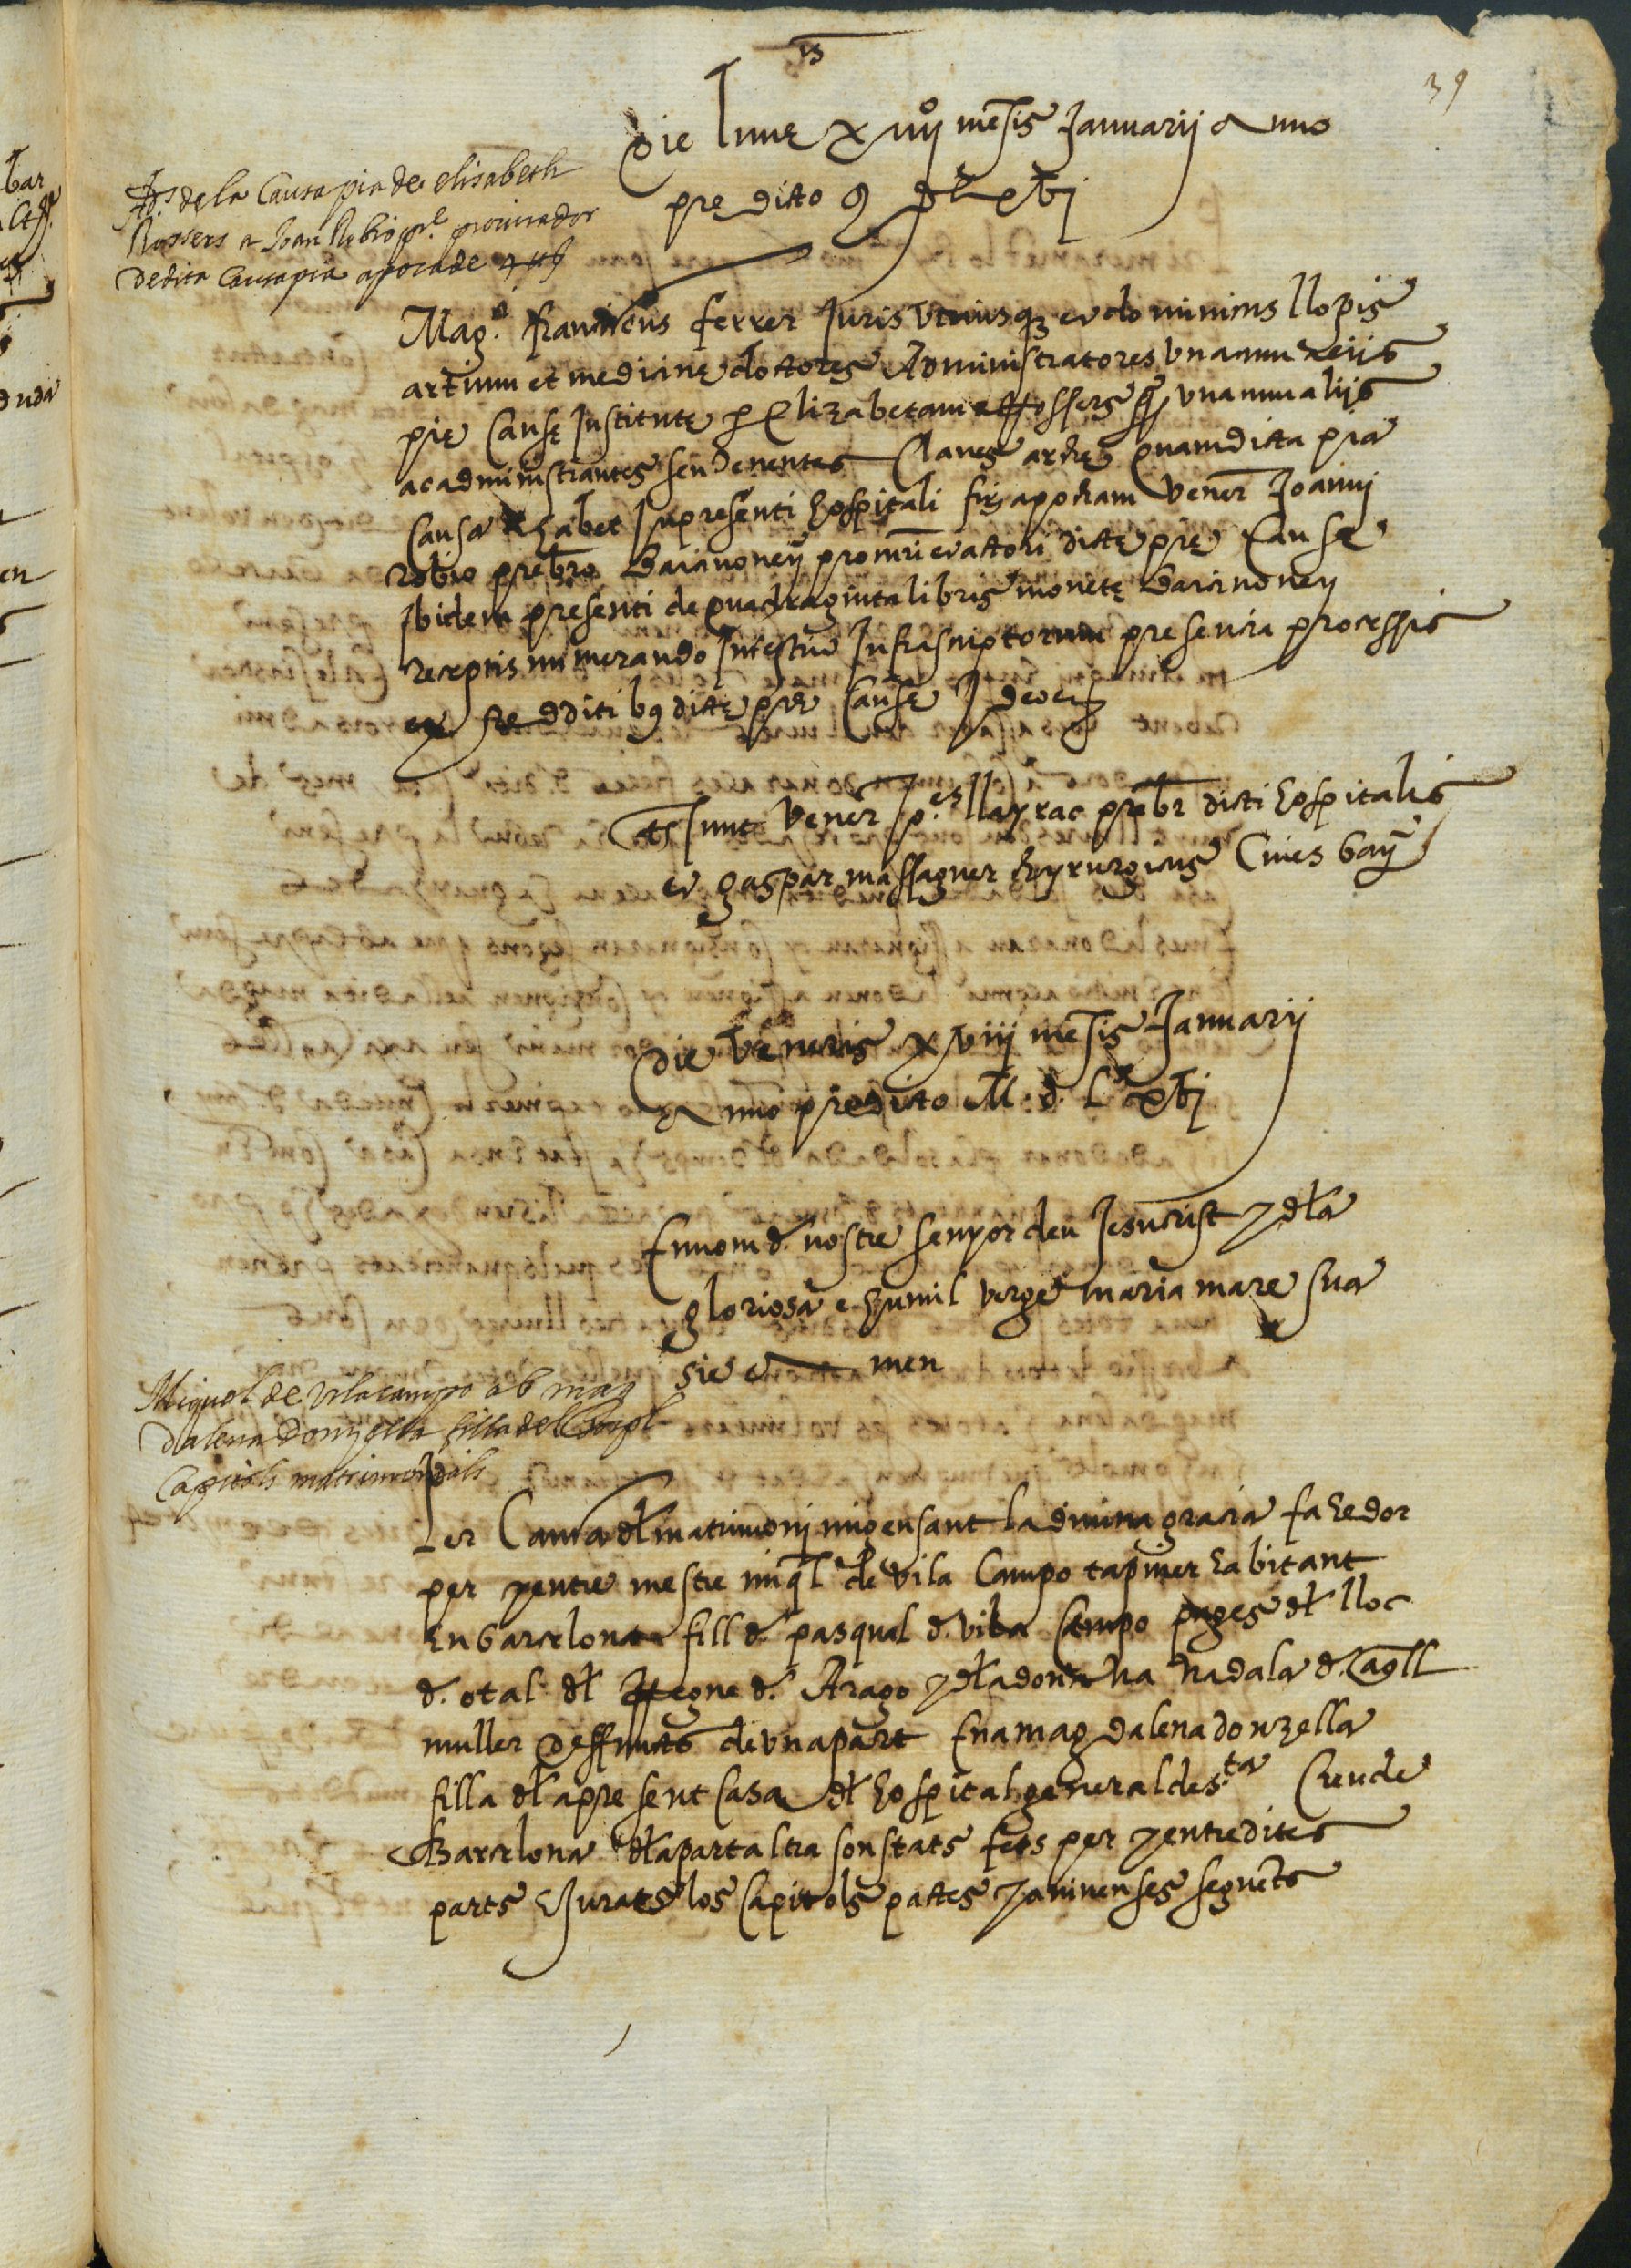 39
Die lune xiiii mensis Januarii Anno
predicto M D Lxvi
Ads de la Causa pia de elisabeth
Rossers a Joan Robio pre procurador
de dita Causa pia apoca de
Mag.ci franciscus ferrer Juris Utriusq3 et dominicus llopis
artium et medicinę doctores Administratores unacum
pię Causę Institutę p Elizabetam Rossers unacum aliis
ac administrantes seu tenentes Claves archę quam dicta pia
Causa habet In presenti hospitali fir apocham vener Joanni
Robio prebro Barcinoneñ procurri et actori dictę pię Causę
Ibidem presenti de quadraginta libris monetę Barcinoneñ
receptis numerando In testium Infrascriptorum presencia processis
ex redditibq dictę pię Causę
Ts sunt Vener Po llayrac prebr dicti hospitalis
et gaspar massaguer chyrurgicus Cives
Die Veneris xviii mensis Januarii
Anno predicto M. d. Lxvi
En nom d. nostre senyor deu Jesucrist y dła
gloriosa e humil verge maria mare sua
sie amen
Miquel de Vilacampo ab mag
dalena donzella filla del Hospl
Capitols matrimonials
Per Causa dł matrimoni migensant la divina gracia fahedor
per y entre mestre miql de Vila Campo tapiner habitant
En barcelona fill d. pasqual d. vila Campo pages dł lloc
d. otal dł Regne d. Arago y dła dona Na Nadala d.
muller deffuncts de una part E na magdalena donzella
filla dła present Casa dł hospital general de s.ta Creu de
Barcelona dła part altra son stats fets per y entre dites
parts E Jurats los Capitols pactes y avinenses seguets